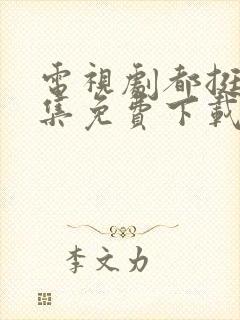 電視劇都挺
集免費下載
李文力